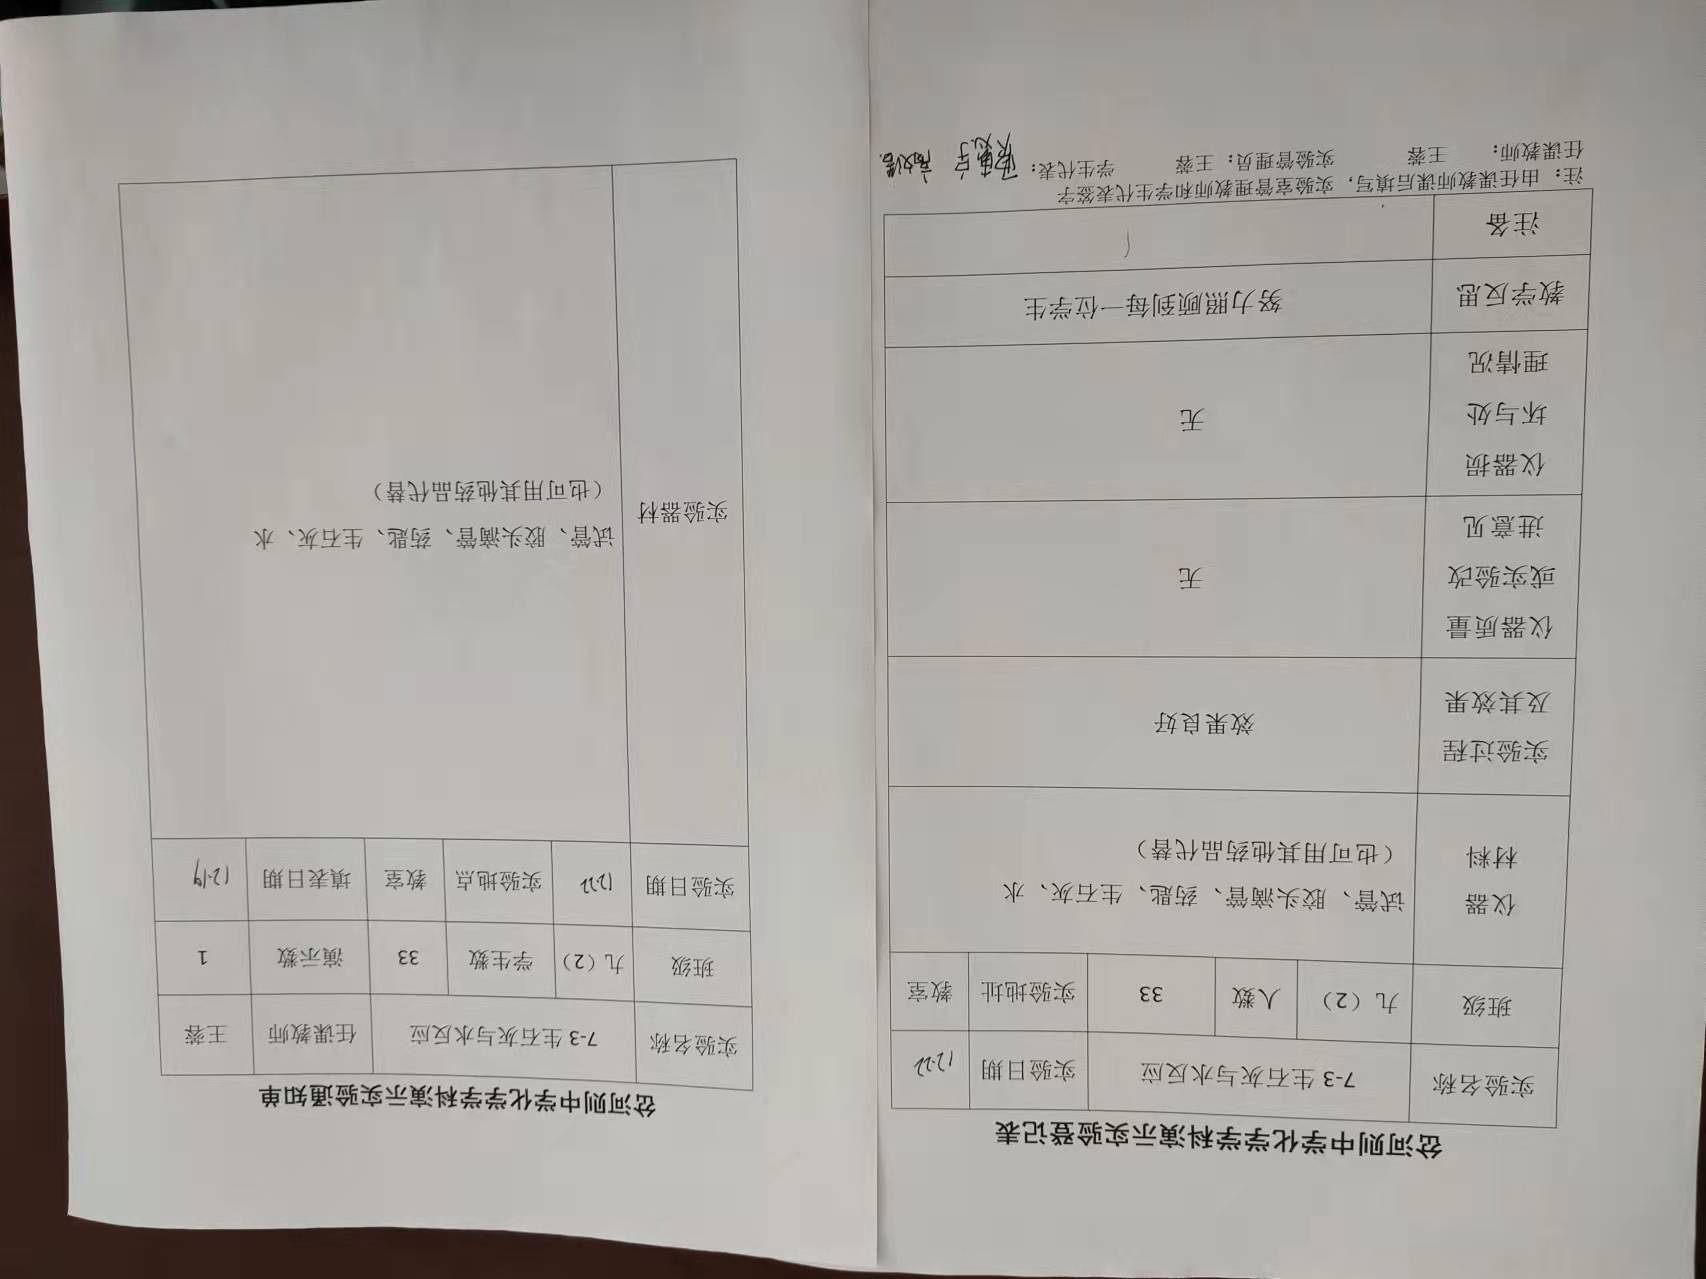 岔河则中学化学学科演示实验登记表
实验名称 7-3 生石灰与水反应 实验日期 12-22
班级 九（2） 人数 33 实验地址 教室
仪器
材料
试管、胶头滴管、药匙、生石灰、水
（也可用其他药品代替）
实验过程
及其效果
效果良好
仪器质量
或实验改
进意见
无
仪器损
坏与处
理情况
无
教学反思 努力照顾到每一位学生
注备
注：由任课教师课后填写，实验室管理教师和学生代表签字
任课教师： 王蓉 实验管理员：王蓉 学生代表：
岔河则中学化学学科演示实验通知单
实验名称 7-3 生石灰与水反应 任课教师 王蓉
班级 九（2） 学生数 33 演示数 1
实验日期 12-22 实验地点 教室 填表日期 12-19
实验器材
试管、胶头滴管、药匙、生石灰、水
（也可用其他药品代替）